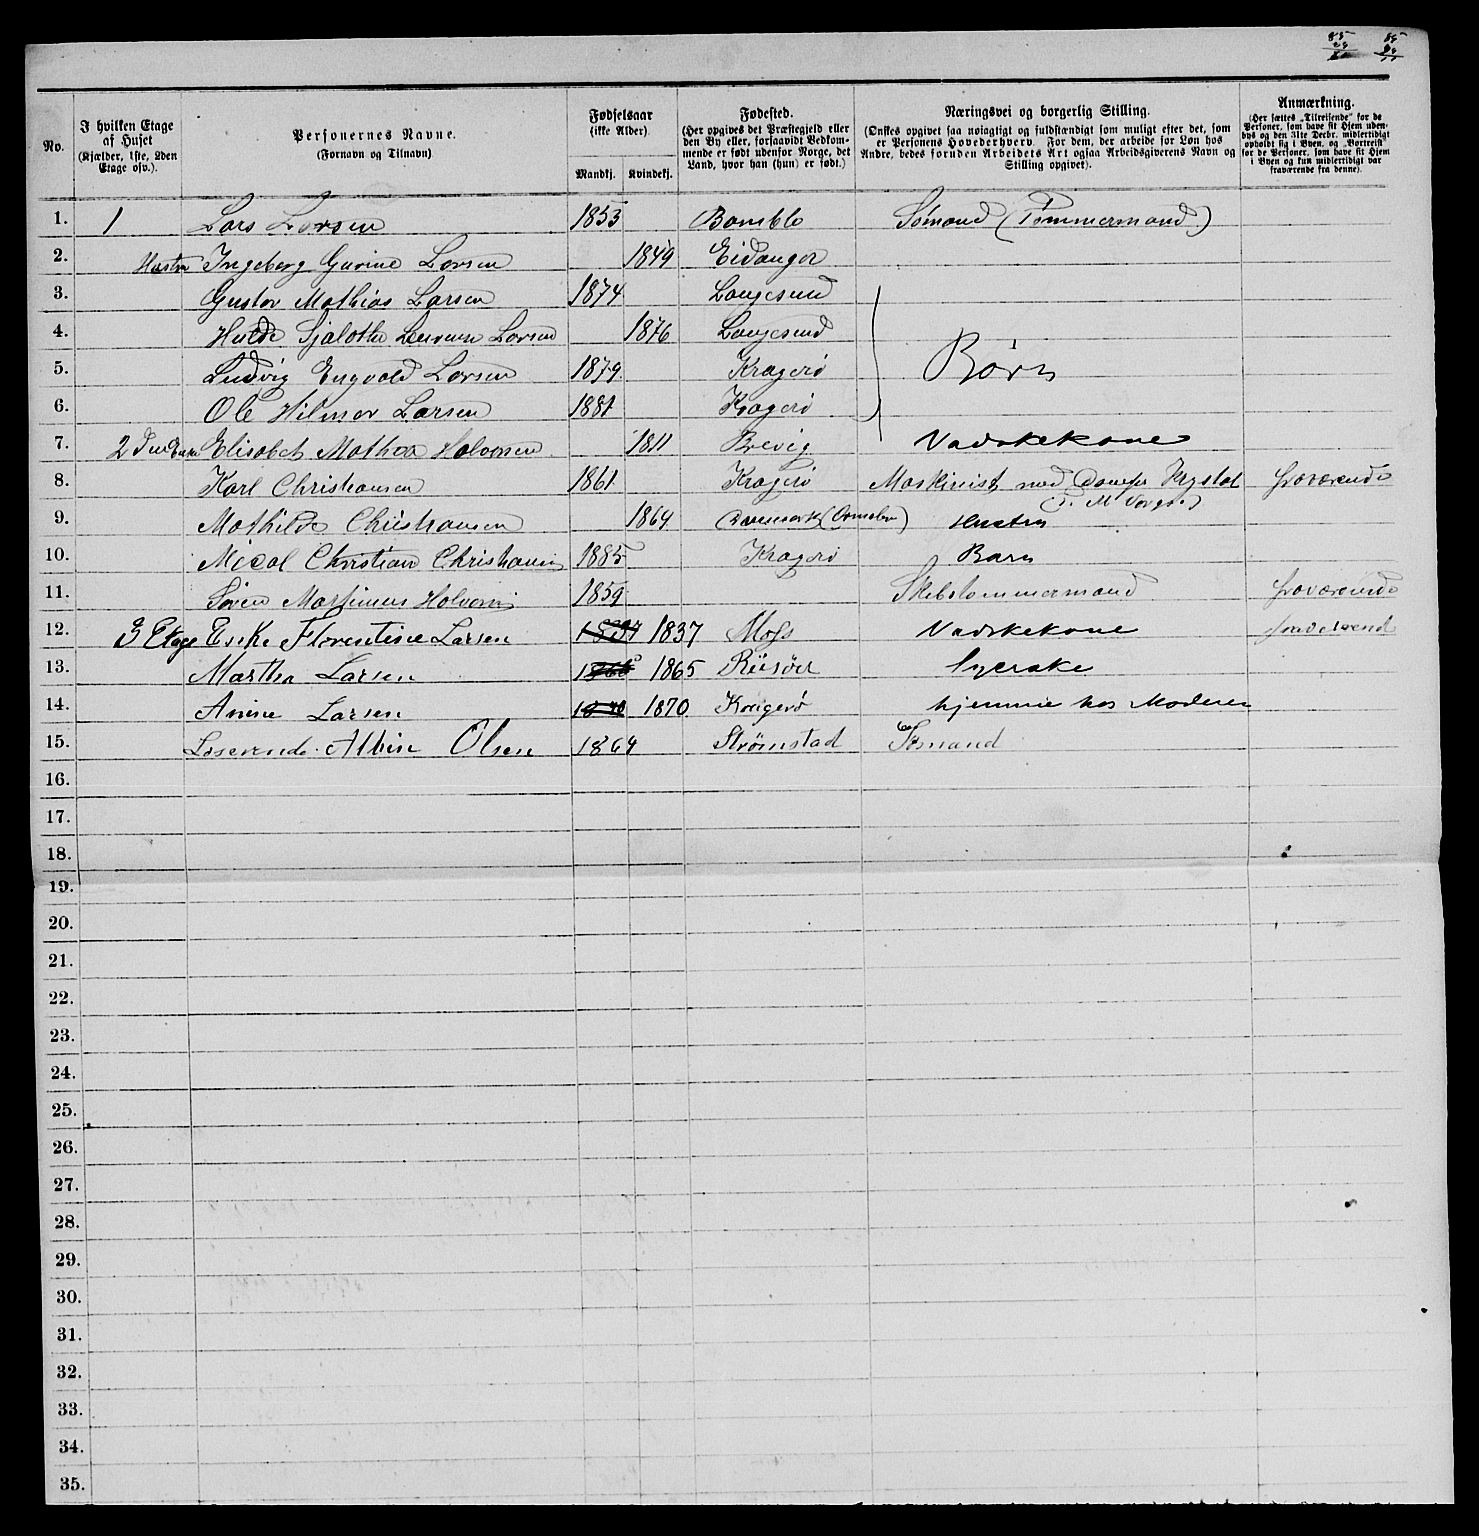 No.
I hvilken Etage af Huset (Kjælder, 1ste, 2den Etage osv.).
Personernes Navne. (Fornavn og Tilnavn)
Fødselsaar (ikke Alder)
Mandkj. Kvindekj.
Fødested. (Her opgives det Præstegjeld eller den By eller, forsaavidt Vedkommende er født udenfor Norge, det Land, hvor han (hun) er født.)
Næringsvei og borgerlig Stilling. (Ønskes opgivet saa nøiagtigt og fuldstændigt som muligt efter det, som er Personens Hovederhverv. For dem, der arbeide for Løn hos Andre, bedes foruden Arbeidets Art ogsaa Arbeidsgiverens Navn og Stilling opgivet).
Anmærkning. (Her sættes „Tilreisende" for de Personer, som have sit Hjem udenbys og den 31te Decbr. midlertidigt opholdt sig i Byen, og „Bortreist" for de Personer, som have sit Hjem i Byen og kun midlertidigt var fraværende fra denne).
1. 1 Lars Larsen 1853 Bamble Sømand (Tømmermand)
2. Hustru Ingeborg Gurine Larsen 1849 Eidanger
3. Gustav Mathias Larsen 1874 Langesund
4. Hulde Larsen 1876 Langesund
5. Ludvig Engvald Larsen 1879 Kragerø Børn
6. Ole Hilmar Larsen 1881 Kragerø
7. 2 Elisabet Mathea Halvorsen 1811 Brevig Vadskekone
8. Karl Christiansen 1861 Kragerø Maskinist med Damsk. Krystal fraværende
9. Mathilde Christiansen 1864 Hustru
10. Christian Christiansen 1885 Kragerø Barn
11. Søren Martinius Halvorsen 1859 Skibstømmermand fraværende
12. 3 Etage Enke Florentine Larsen 1837 Moss Vadskekone fraværend
13. Martha Larsen 1865 Riisøer Syerske
14. Anine Larsen 1870 Kragerø hjemme hos Moderen
15. Logerende Albin Olsen 1864 Strømstad Sømand
16.
17.
18.
19.
20.
21.
22.
23.
24.
25.
26.
27.
28.
29.
30.
31.
32.
33.
34.
35.